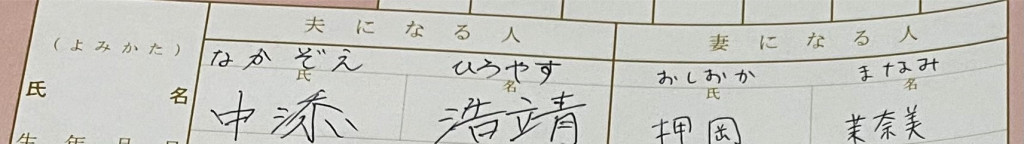 夫になる人 妻になる人
(よみかた) なかぞえ ひろやす おしおか まなみ
氏名 氏 名 氏 名
中添 浩靖 押岡 茉奈美
生年月日